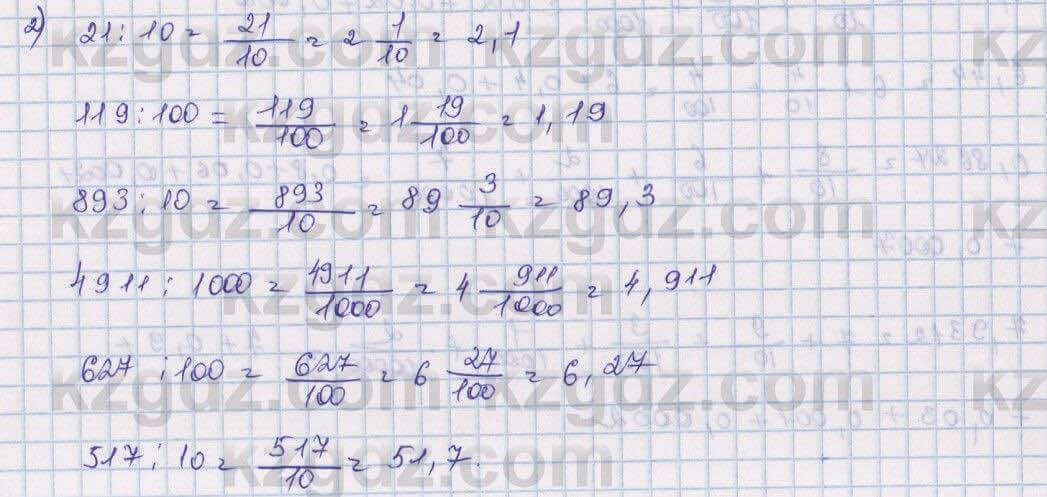 2) 21 : 10 = 21/10 = 2 1/10 = 2,1
119 : 100 = 119/100 = 1 19/100 = 1,19
893 : 10 = 893/10 = 89 3/10 = 89,3
4911 : 1000 = 4911/1000 = 4 911/1000 = 4,911
627 : 100 = 627/100 = 6 27/100 = 6,27
517 : 10 = 517/10 = 51,7.
kzgdz.com